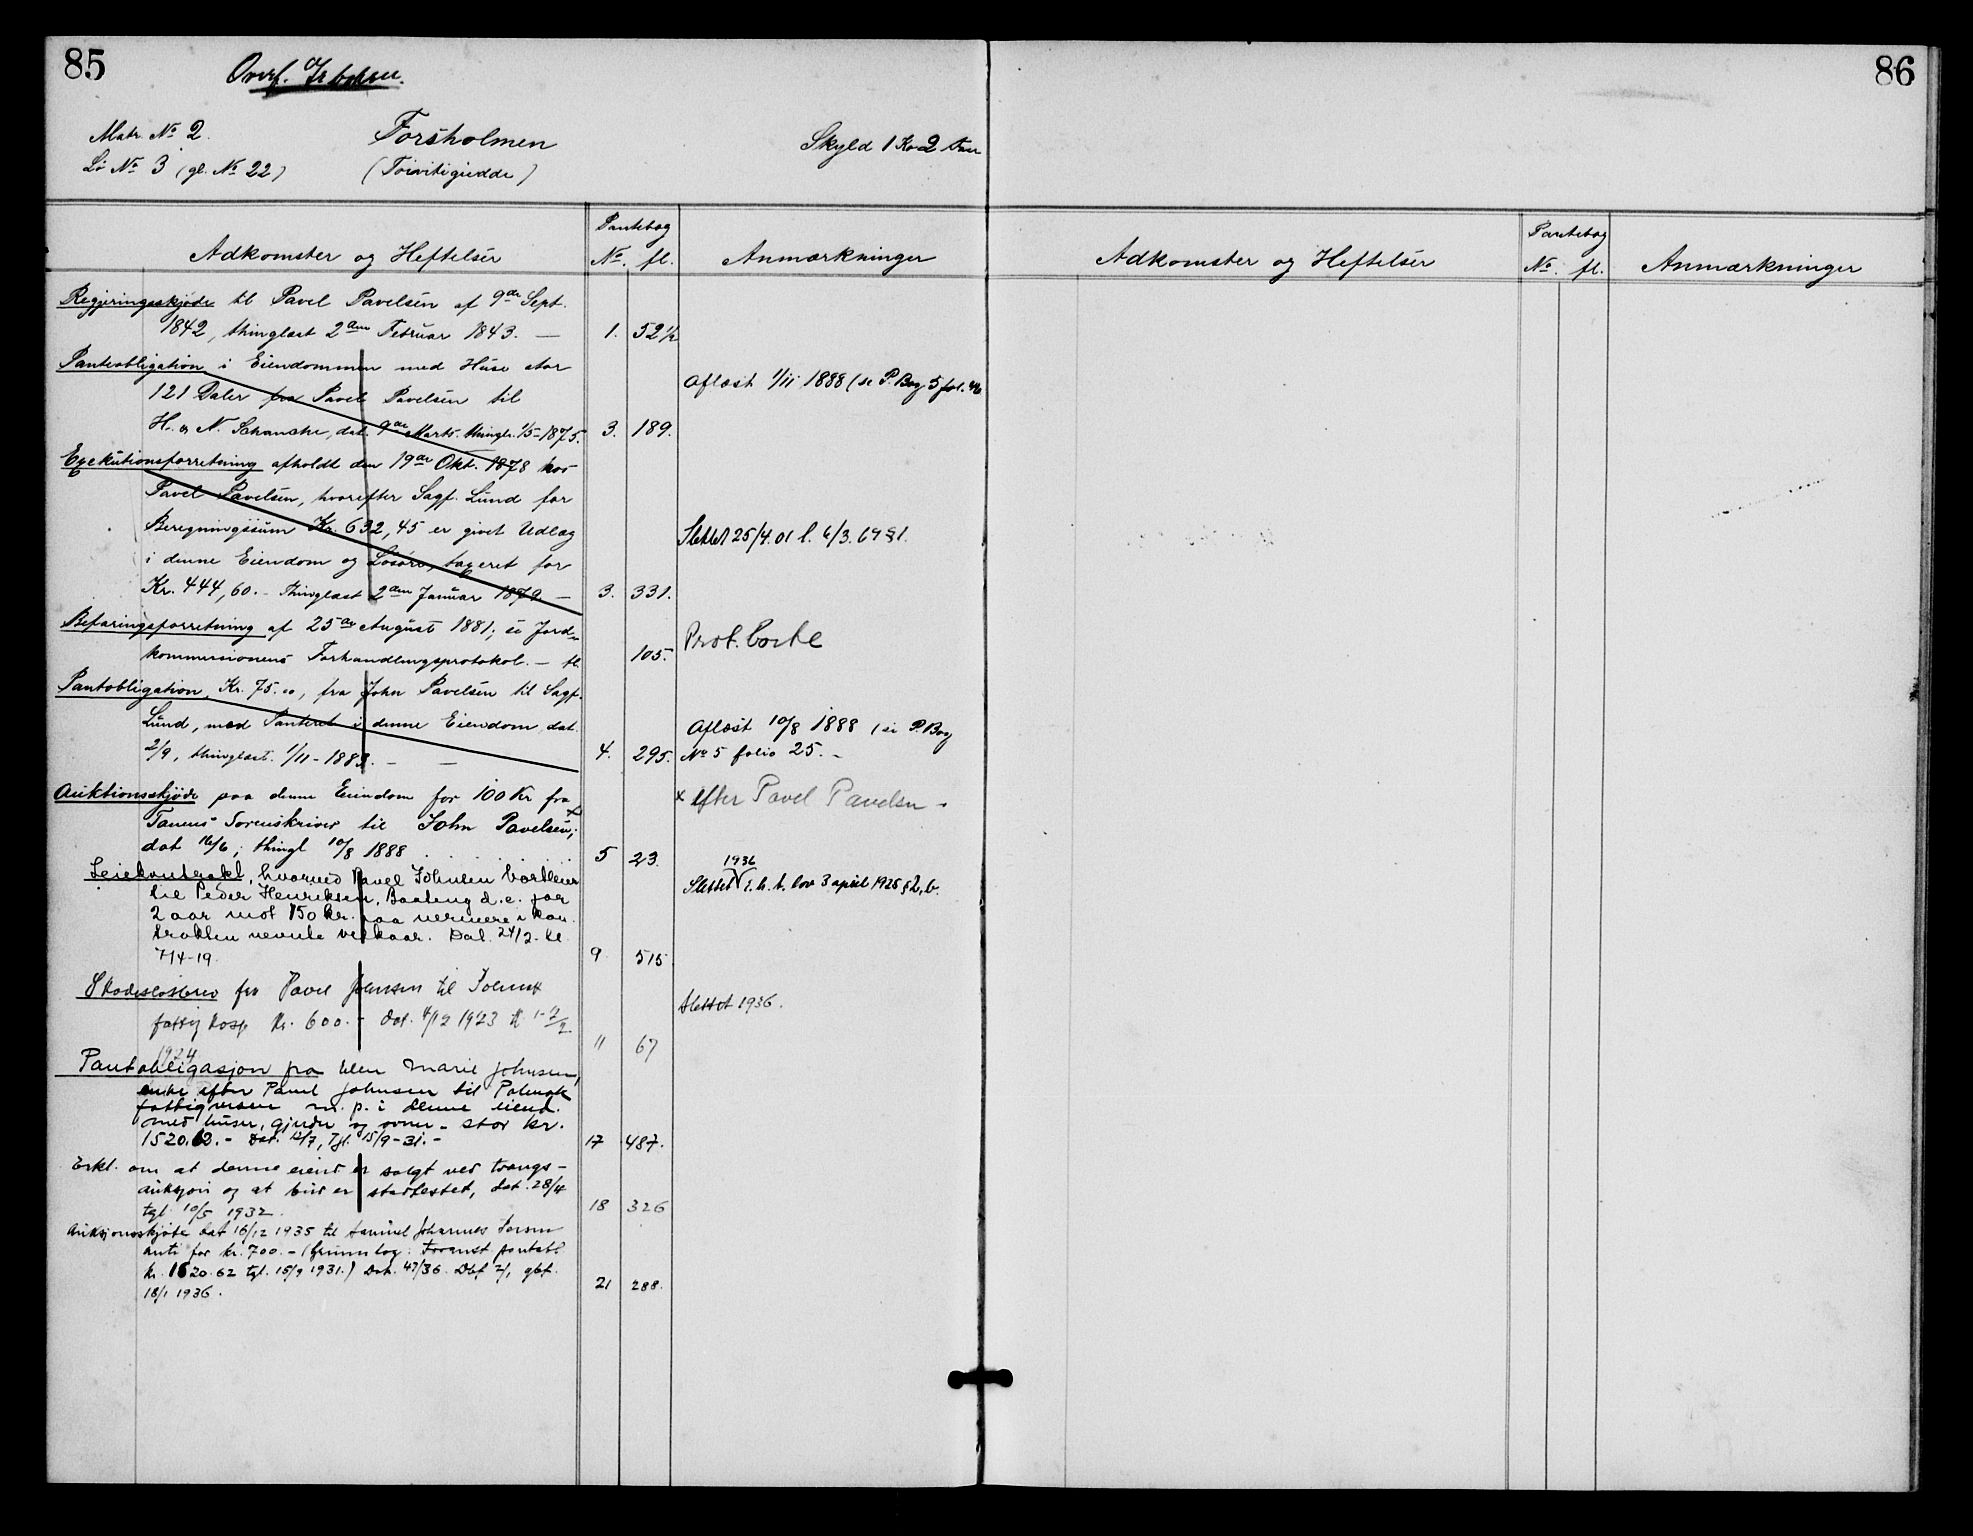 85
86
Overf.
Matr. No 2.
Forsholmen
Skyld 1 Kr 2
Lö No 3 (gl. No 22)
(Toivitigiedde)
Adkomster og Heftelser
Pantebog
No. fl.
Anmærkninger
Adkomster og Heftelser
Pantebog
No. fl.
Anmærkninger
Regjeringsskjöde til Pavel Pavelsen af 9de Sept.
1842, thinglæst 2den Februar 1843. — 1. 52½
Panteobligation i Eiendommen med Huse stor
121 Daler fra Pavel Pavelsen til
Aflæst 1/11 1888 (se P. Bog 5 fol. 46
H. & N. Schanche, dat. 9de Marts. thingl. 1/5-1875. 3. 189.
Exekutionsforretning afholdt den 19de Okt. 1878 hos
Pavel Pavelsen, hvorefter Sagf. Lund for
Beregningssum Kr. 632,45 er givet Udlæg
Slettet 25/4.01 l. 6/3.69 §1.
i denne Eiendom og Lösöre, taxeret for
Kr. 444,60. - Thinglæst 2den Januar 1879. — 3. 331.
Befaringsforretning af 25de August 1881; se Jord-
kommissionens Forhandlingsprotokol. — fl. 105.
Prot. borte
Pantobligation, Kr. 75.00, fra John Pavelsen til Sagf.
Lund, med Panteret i denne Eiendom, dat.
Aflæst 10/8 1888 (se P. Bog
2/9, thinglæst. 1/11-1883. — — 4. 295.
No 5 folio 25. -
Auktionsskjöde paa denne Eiendom for 100 Kr fra
x efter Pavel Pavelsen -
Tanens Sorenskriver til John Pavelsen x;
dat 16/6; thingl 10/8 1888. 5 23.
Leiekontrakt, hvorved Pavel Johnsen bortleier
til Peder Henriksen, Baateng d. e. for
1936
Slettet i. h. t. lov 3 april 1925 § 2, b.
2 aar mot 150 kr. paa nermere i kon-
trakten nevnte velkaar. Dat. 24/2. tl
7/4-19. 9 515
Skadeslösbrev fra Pavel Johnsen til Polmak
Slettet 1936.
fattig kasse Kr. 600.- Dat. 4/12 1923 tl. 1-2/2
1924 11 67
Pantobligasjon fra Ellen Marie Johnsen,
enke efter Pavel Johnsen til Polmak
fattigvesen m. p. i denne eiend.
med huser, gjerder og ovner - stor kr.
1520.62.- Dat. 12/7, Tgl. 15/9-31.- 17 487.
Erkl. om at denne eiend er solgt ved tvangs-
auksjon og at bud er stadfestet, dat. 28/4
tgl. 10/5 1932. 18 326
Auksjonsskjöte dat 16/12 1935 til Samuel Johannes
for kr. 700.- (Grunnlag: Foranst. pantobl.
kr. 1520.62 tgl. 15/9 1931.) Dok. 47/36. Dbf 2/1, gbf.
18/1 1936. 21 288.